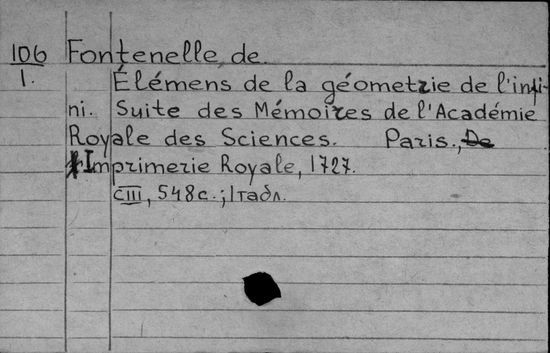 106 Fontenelle, de.
1. Élémens de la géometrie de l'infi-
ni. Suite des Mémoires de l'Académie
Royale des Sciences. Paris., De
Imprimerie Royale, 1727.
CIII, 548с.; 1 табл.